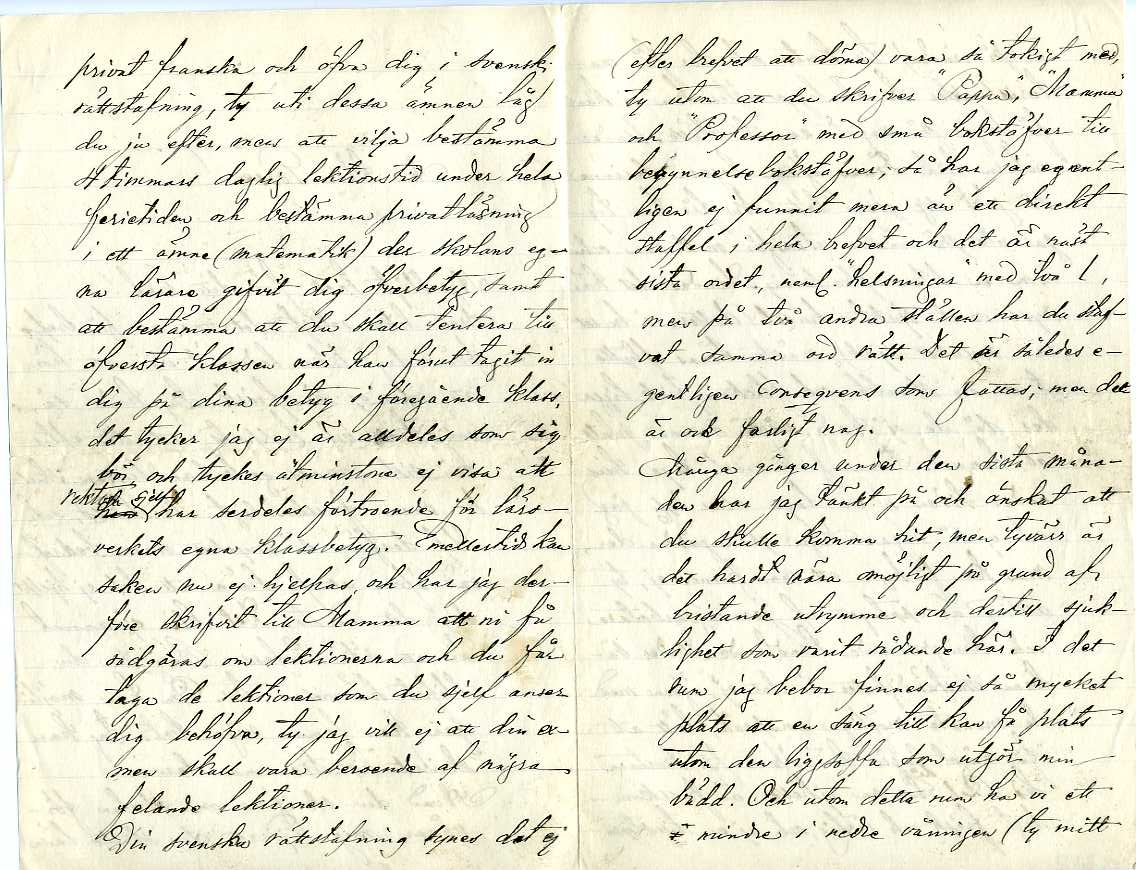 privat franska och öfva dig i svensk
rättstafning, ty uti dessa ämnen låg
du ju efter, men att vilja bestämma
4 timmars daglig lektionstid under hela
ferietiden och bestämma privatläsning
i ett ämne (matematik) der skolans eg-
na lärare gifvit dig öfverbetyg, samt
att bestämma att du skall tentera till
öfversta klassen när han förut tagit in
dig på dina betyg i föregående klass,
det tycker jag ej är alldeles som sig
bör och tyckes åtminstone ej visa att
rektorn sjelf har serdeles förtroende för läro-
verkets egna klassbetyg. Emellertid kan
saken nu ej hjelpas, och har jag der-
före skrifvit till Mamma att ni få
rådgöras om lektionerna och du får
taga de lektioner som du sjelf anser
dig behöfva, ty jag vill ej att din ex-
men skall vara beroende af några
felande lektioner.
Din svenska rättstafning synes det ej
(efter brefvet att döma) vara så tokigt med,
ty utom att du skrifver "Pappa", "Mamma"
och "Professor" med små bokstäfver till
begynnelsebokstäfver, så har jag egent-
ligen ej funnit mera än ett direkt
staffel i hela brefvet och det är näst
sista ordet, neml. "helsningar" med två l,
men på två andra ställen har du staf-
vat samma ord rätt. Det är således e-
gentligen consequens som fattas; men det
är ock farligt nog.
Många gånger under den sista måna-
den har jag tänkt på och önskat att
du skulle komma hit, men tyvärr är
det hardt nära omöjligt på grund af
bristande utrymme och dertill sjuk-
lighet som varit rådande här. I det
rum jag bebor finnes ej så mycket
plats att en säng till kan få plats
utom den liggsoffa som utgör min
bädd. Och utom detta rum ha vi ett
mindre i nedre våningen (ty mitt